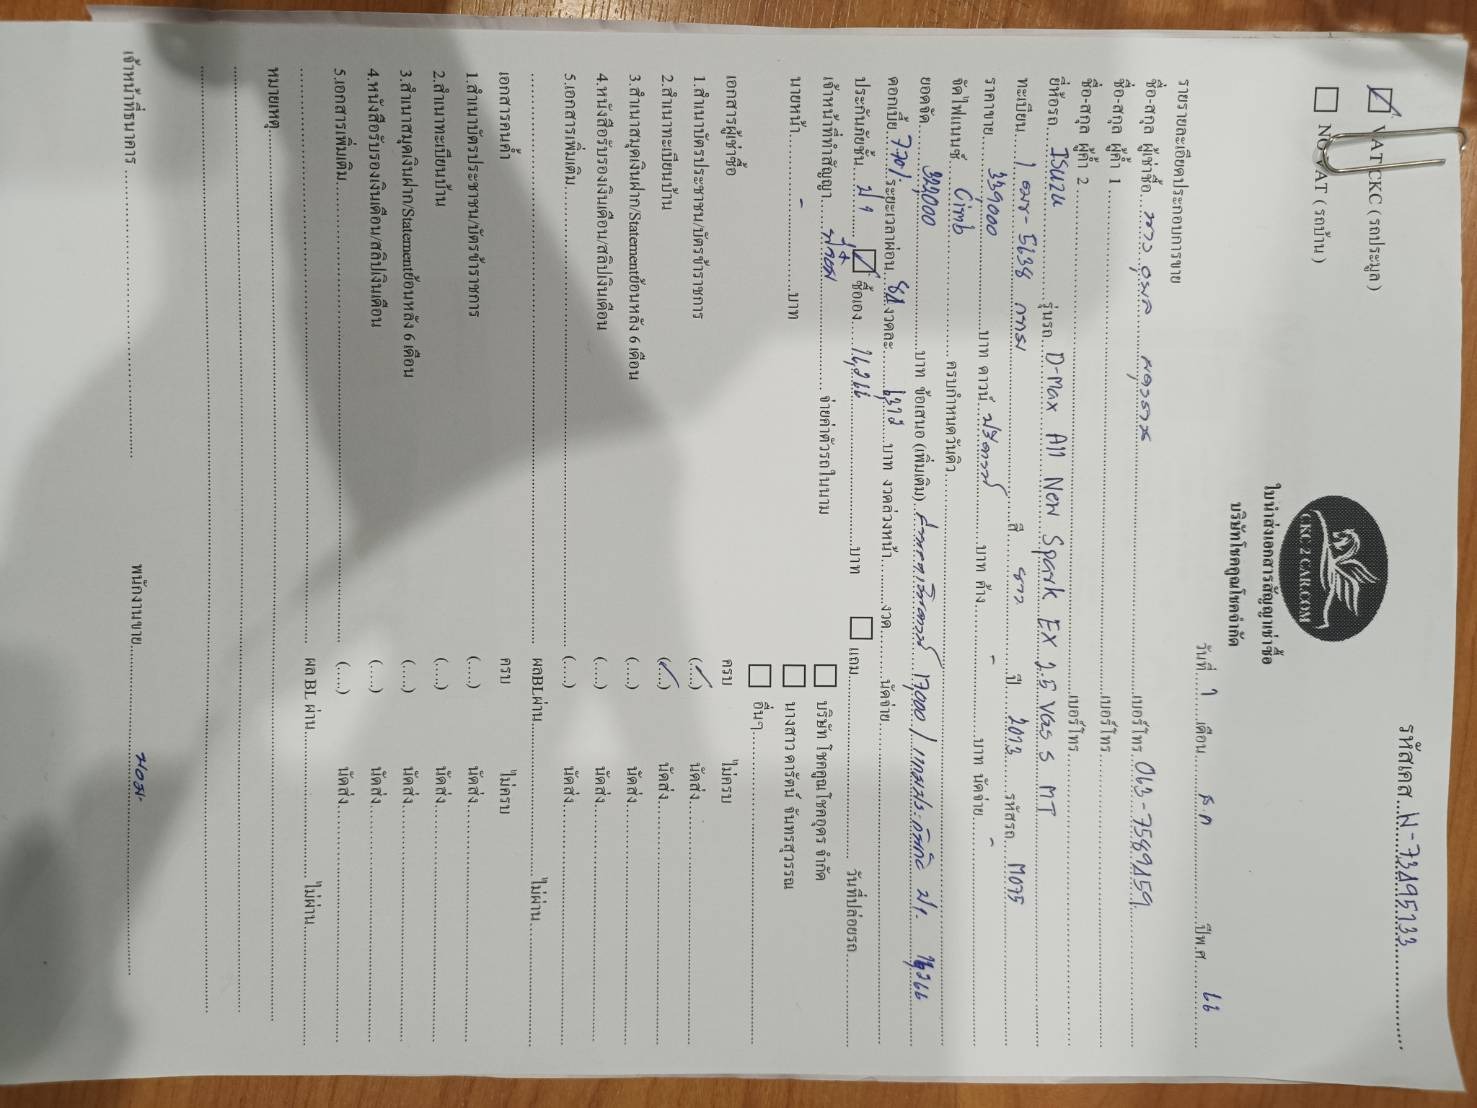 รหัสเคส N-73A95133
VAT CKC ( รถประมูล )
NO VAT ( รถบ้าน )
CKC 2 CAR.COM
ใบนำส่งเอกสารสัญญาเช่าซื้อ
บริษัทโชคคูณโชคจำกัด
วันที่ 1 เดือน ธค ปีพ.ศ. 66
รายรายละเอียดประกอบการขาย
ชื่อ-สกุล ผู้เช่าซื้อ เบอร์โทร. 063-7589459
ชื่อ-สกุล ผู้ค้ำ 1 เบอร์โทร.
ชื่อ-สกุล ผู้ค้ำ 2 เบอร์โทร.
ยี่ห้อรถ ISUZU รุ่นรถ D-Max All New Spark EX 2.5 VGS S MT
ทะเบียน 1 ฒฆ-5638 กทม สี ขาว ปี 2013 รหัสรถ M075
ราคาขาย 339,000 บาท ดาวน์ ฟรีดาวน์ บาท ค้าง - บาท นัดจ่าย -
จัดไฟแนนซ์ Cimb ครบกำหนดวันคิว
ยอดจัด 322,000 บาท ข้อเสนอ (เพิ่มเติม) 17,000 / 14,266
ดอกเบี้ย ระยะเวลาผ่อน 84 งวดละ บาท งวดล่วงหน้า งวด นัดจ่าย
ประกันภัยชั้น ป1 ซื้อเอง 14,266 บาท แถม วันที่ปล่อยรถ
เจ้าหน้าที่ทำสัญญา จ่ายค่าตัวรถในนาม บริษัท โชคคูณโชคอุดร จำกัด
นายหน้า - บาท นางสาว ดารัตน์ จันทรสุวรรณ
อื่นๆ
เอกสารผู้เช่าซื้อ ครบ ไม่ครบ
1.สำเนาบัตรประชาชน/บัตรข้าราชการ (✓) นัดส่ง
2.สำเนาทะเบียนบ้าน (✓) นัดส่ง
3.สำเนาสมุดเงินฝาก/Statementย้อนหลัง 6 เดือน (....) นัดส่ง
4.หนังสือรับรองเงินเดือน/สลิปเงินเดือน (....) นัดส่ง
5.เอกสารเพิ่มเติม (....) นัดส่ง
ผลBLผ่าน ไม่ผ่าน
เอกสารคนค้ำ ครบ ไม่ครบ
1.สำเนาบัตรประชาชน/บัตรข้าราชการ (....) นัดส่ง
2.สำเนาทะเบียนบ้าน (....) นัดส่ง
3.สำเนาสมุดเงินฝาก/Statementย้อนหลัง 6 เดือน (....) นัดส่ง
4.หนังสือรับรองเงินเดือน/สลิปเงินเดือน (....) นัดส่ง
5.เอกสารเพิ่มเติม (....) นัดส่ง
ผล BL ผ่าน ไม่ผ่าน
หมายเหตุ
เจ้าหน้าที่ธนาคาร พนักงานขาย